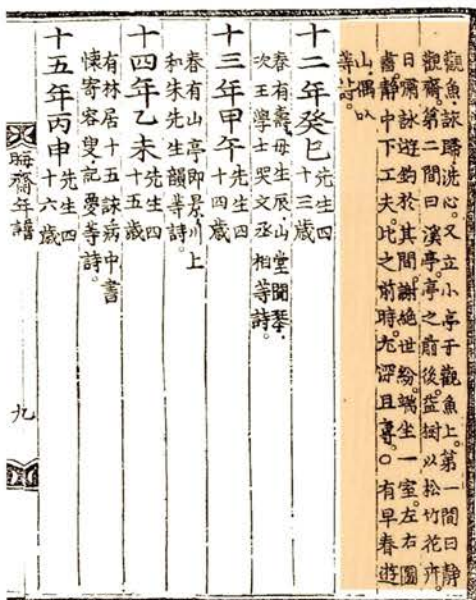 觀魚.詠歸.洗心。又立小亭于觀魚上。第一間曰靜
觀齋。第二間曰溪亭。亭之前後。益樹以松竹花卉。
日嘯詠遊釣於其間。謝絕世紛。端坐一室。左右圖
書。靜中下工夫。比之前時。尤深且專。○有早春遊
山.偶以
等詩。
十二年癸巳 先生四
十三歲
春有壽母生辰.山堂聞琴.
次王學士哭文丞相等詩。
十三年甲午 先生四
十四歲
春有山亭即景.川上
和朱先生韻等詩。
十四年乙未 先生四
十五歲
有林居十五詠.病中書
懷寄容叟.記夢等詩。
十五年丙申 先生四
十六歲
晦齋年譜
九